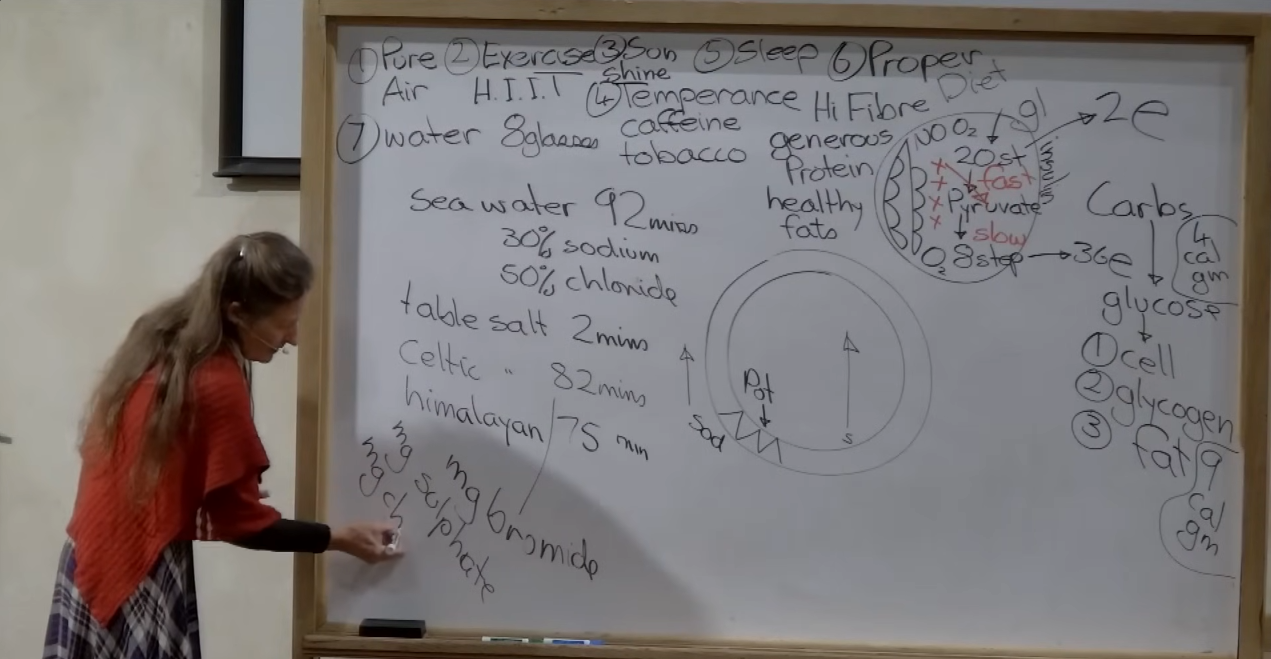 ① Pure ② Exercise ③ Sun ⑤ Sleep ⑥ Proper
Air H.I.I.T shine Diet
④ Temperance Hi Fibre
⑦ water 8 glasses caffeine generous
tobacco Protein
healthy
fats
sea water 92 mins
30% sodium
50% chloride
table salt 2 mins
Celtic " 82 mins
himalayan 75 min
mg bromide
mg sulphate
mg ch
Sod
Pot
S
NO O₂ gl
20 st → 2e
fast
Pyruvate
slow
O₂ 8 step → 36e
Carbs
4
cal
gm
glucose
① cell
② glycogen
③ fat 9
cal
gm